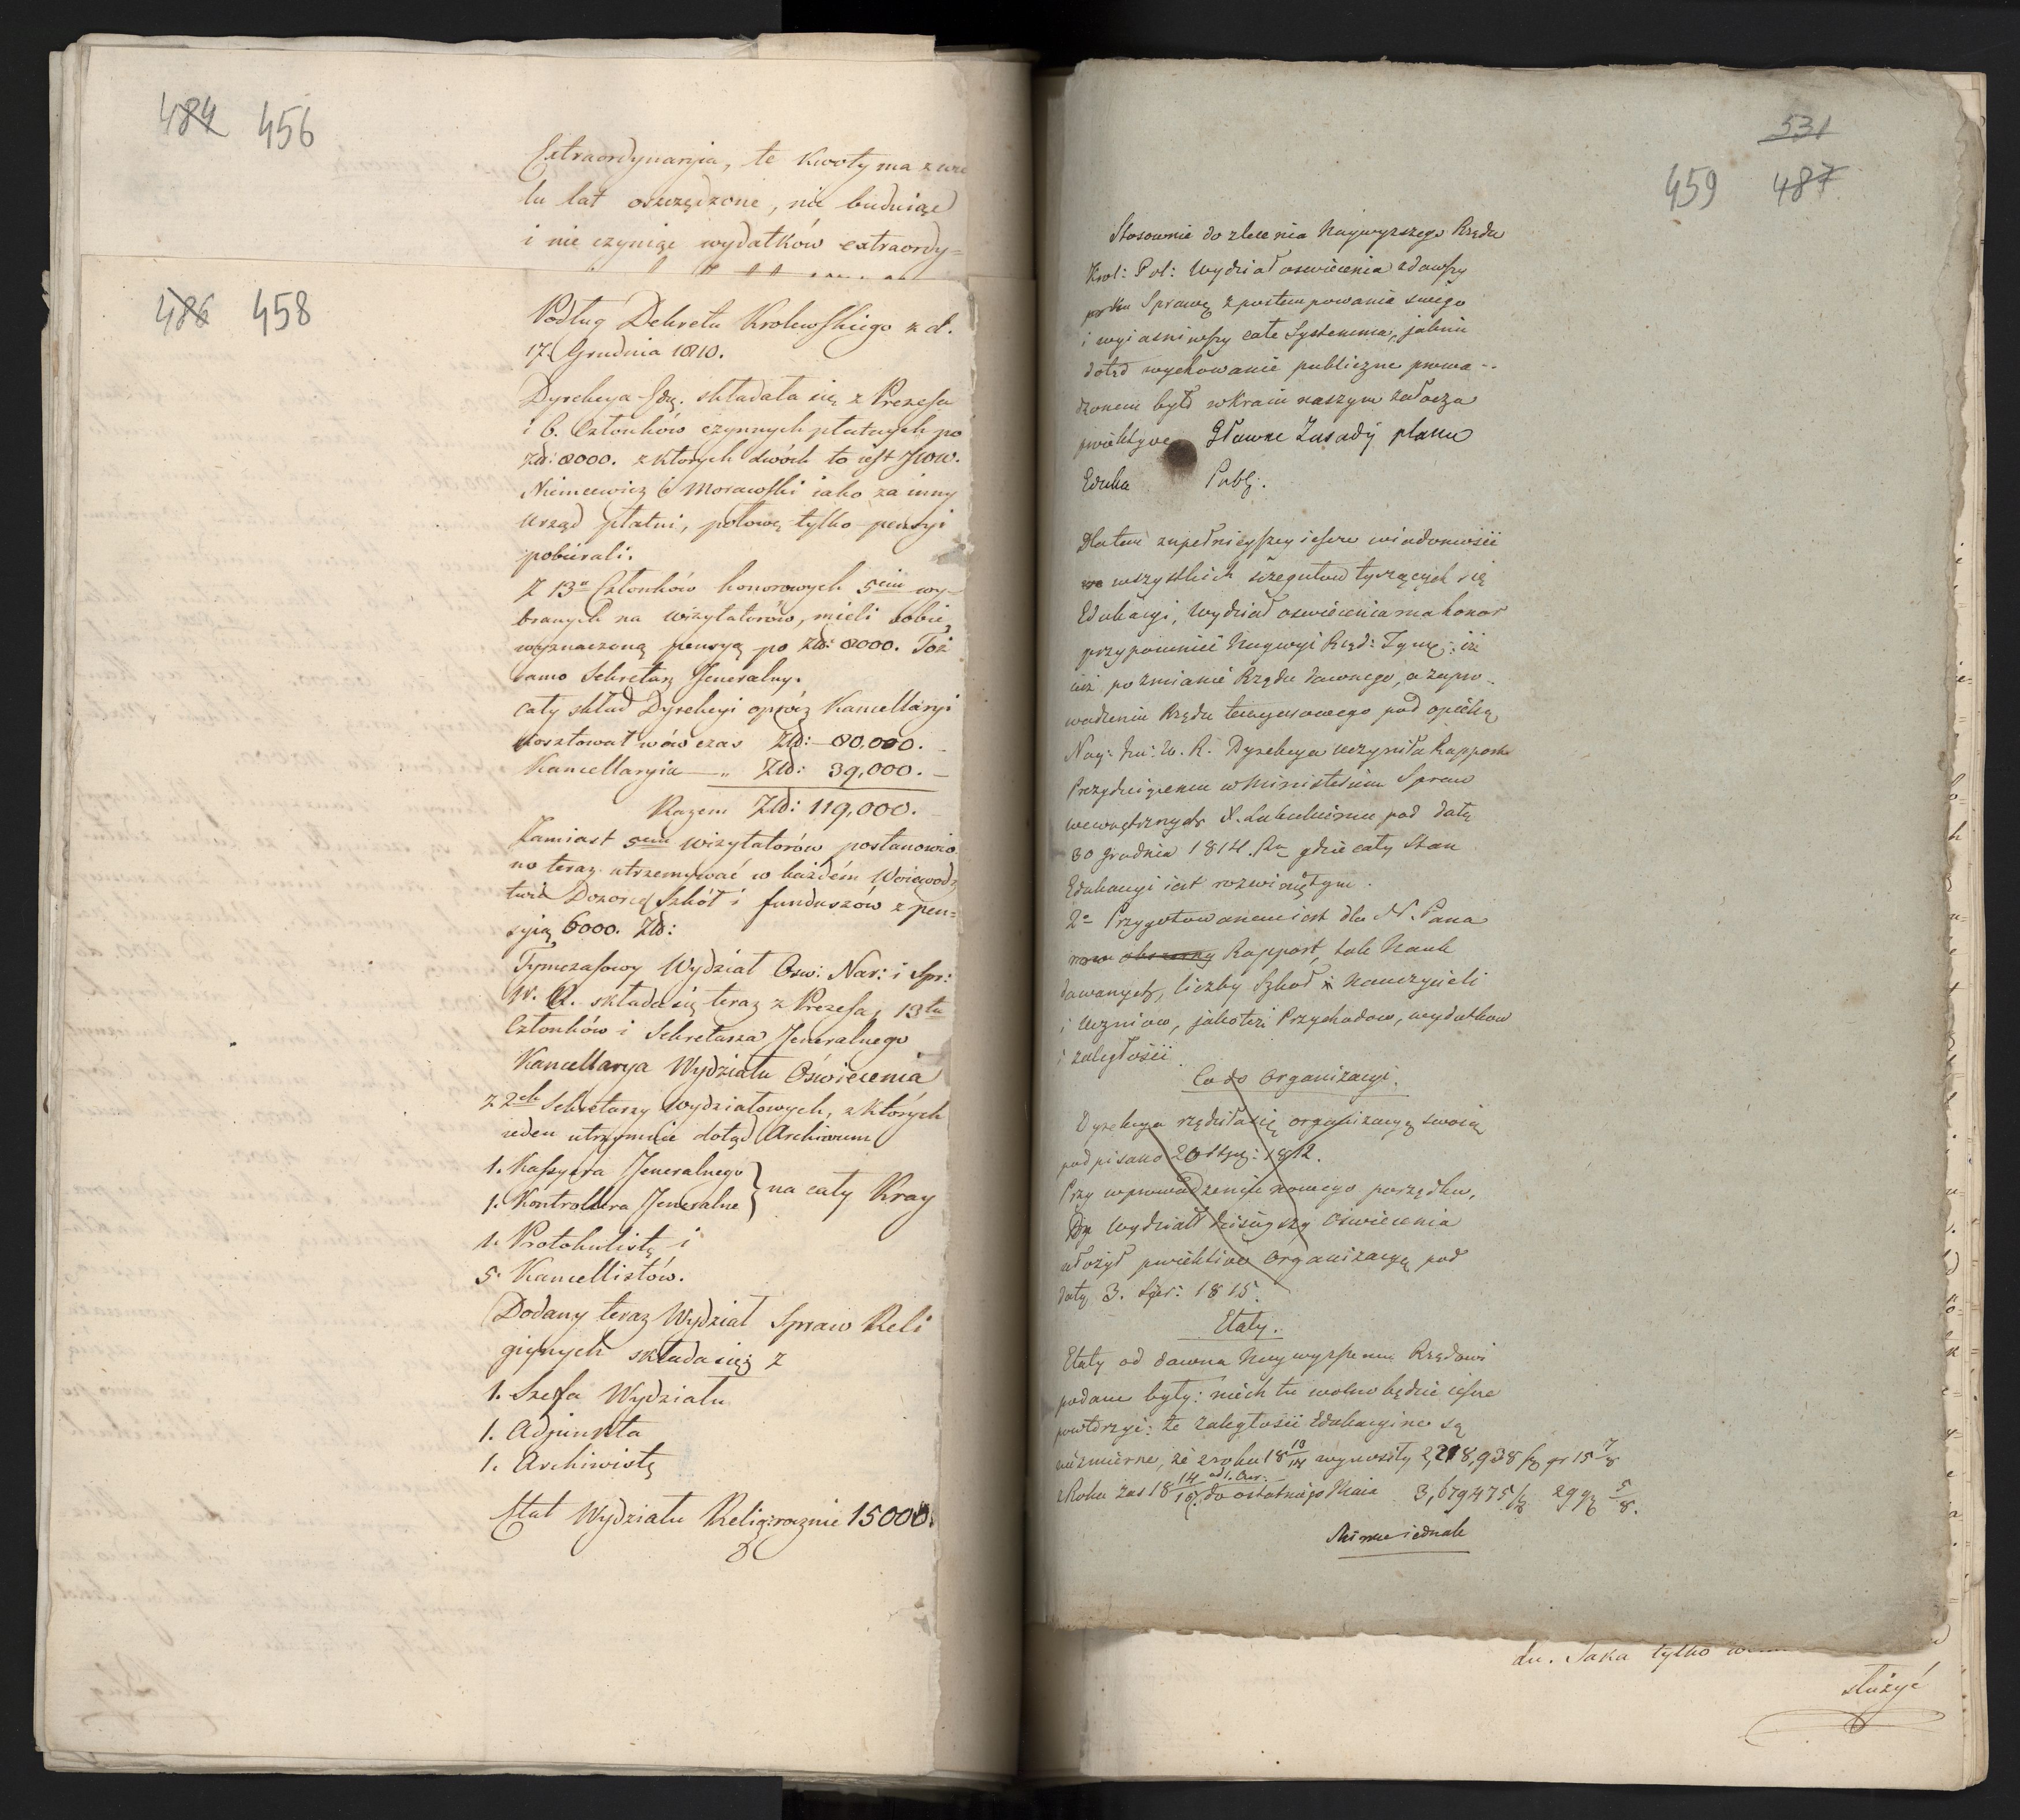 484 456
Extraordynaryia, te kwoty ma z wie
lu lat oszczędzone, nie buduiąc
i nie czyniąc wydatków extraordy=
486 458
Podług Dekretu Krolewskiego z d.
17. Grudnia 1810.
Dyrekcya Edu. składała się z Prezesa
i 6. Członków czynnych płatnych po
Złł: 8000. z ktorych dwóch to iest
Niemcewicz i Morawski iako za inny
urząd płatni, połowę tylko pensyi
pobierali.
Z 13u Członków honorowych 5ciu wy-
branych na wizytatorów, mieli sobie
wyznaczoną pensyą po Złł: 8000. Toż
samo Sekretarz Jeneralny.
Cały skład Dyrekcyi oprócz Kancellaryi
kosztował wów czas Złł: 80,000. –
Kancellaryia — „ Złł: 39,000. –
Razem Złł: 119,000. –
Zamiast 5ciu wizytatorów postanowio
no teraz utrzemywać w każdém Woiewodz
twie Dozorcę Szkół i funduszów z pen=
syią 6000. Złł:
Tymczasowy Wydział Ośw: Nar: i Spr:
W. R. składa się teraz z Prezesa, 13tu
Członków i Sekretarza Jeneralnego
Kancellarya Wydziału Oświecenia
z 2ch Sekretarzy wydziałowych, z których
ieden utrzymuie dotąd Archiwum
1. Kassyera Jeneralnego
1. Kontrollera Jeneralne } na cały Kray
1. Protokulistę i
5. Kancellistów.
Dodany teraz Wydział Spraw Reli
giynych składa się z
1. Szefa Wydziału
1. Adjunkta
1. Archiwistę
Etat Wydziału Relig: rocznie 15000.
531
459 487
Stosownie do zlecenia Naywyzszego Rządu
Krol: Pol: Wydział oswiecenia zdawszy
Sprawę z postempowania swego
i wyiasniwszy całe Systemma, jakiem
dotąd wychowanie publiczne prowa-
dzonem było w Kraiu naszym załącza
proiektowe Główne Zasady planu
Eduka Publ:
Dla tem zupełnieyszey ieszcze wiadomości
we wszystkich szczegułów tyczących się
Edukacyi, Wydział oswiecenia ma honor
przypomnieć Naywyż Rząd: Tymcz: iż
iuż po zmianie Rządu dawnego, a zapro-
wadzeniu Rządu tymczasowego pod opieką
Nay: W. R. Dyrekcya uczyniła Rapport
Prezyduiącemu w Ministerium Spraw
wewnętrznych X. Lubeckiemu pod datą
30 Grudnia 1814. gdzie cały Stan
Edukacyi iest rozwiniętym.
2o Przygotowanem iest dla N. Pana
nowe obszerny Rapport, tak Nauk
dawanych, liczby Szkół i Nauczycieli
i Uczniow, jako też Przychodow, wydatkow
i zaległości
Co do Organizacyi.
Dyrekcya rządziła się organizacyą swoią
podpisano 20 1812.
Przy wprowadzeniu nowego porządku,
Dy Wydział dzisieyszy Oświecenia
ułożył proiektow Organizacyą pod
datą 3. 1815.
Etaty.
Etaty od dawna Naywyzszemu Rządowi
podane były: niech tu wolno będzie ieszcze
powtórzyć: że zaległości Edukacyine są
niezmierne, że z roku 18 13/14 wynosiły 2,218,938 fz gr 15 7/8
z Roku zas 18 14/15 od 1. Czer: do ostatniego Maia 3,679475 fz 29 gz 5/8.
Mimo iednak
du. Taka tylko
służyć